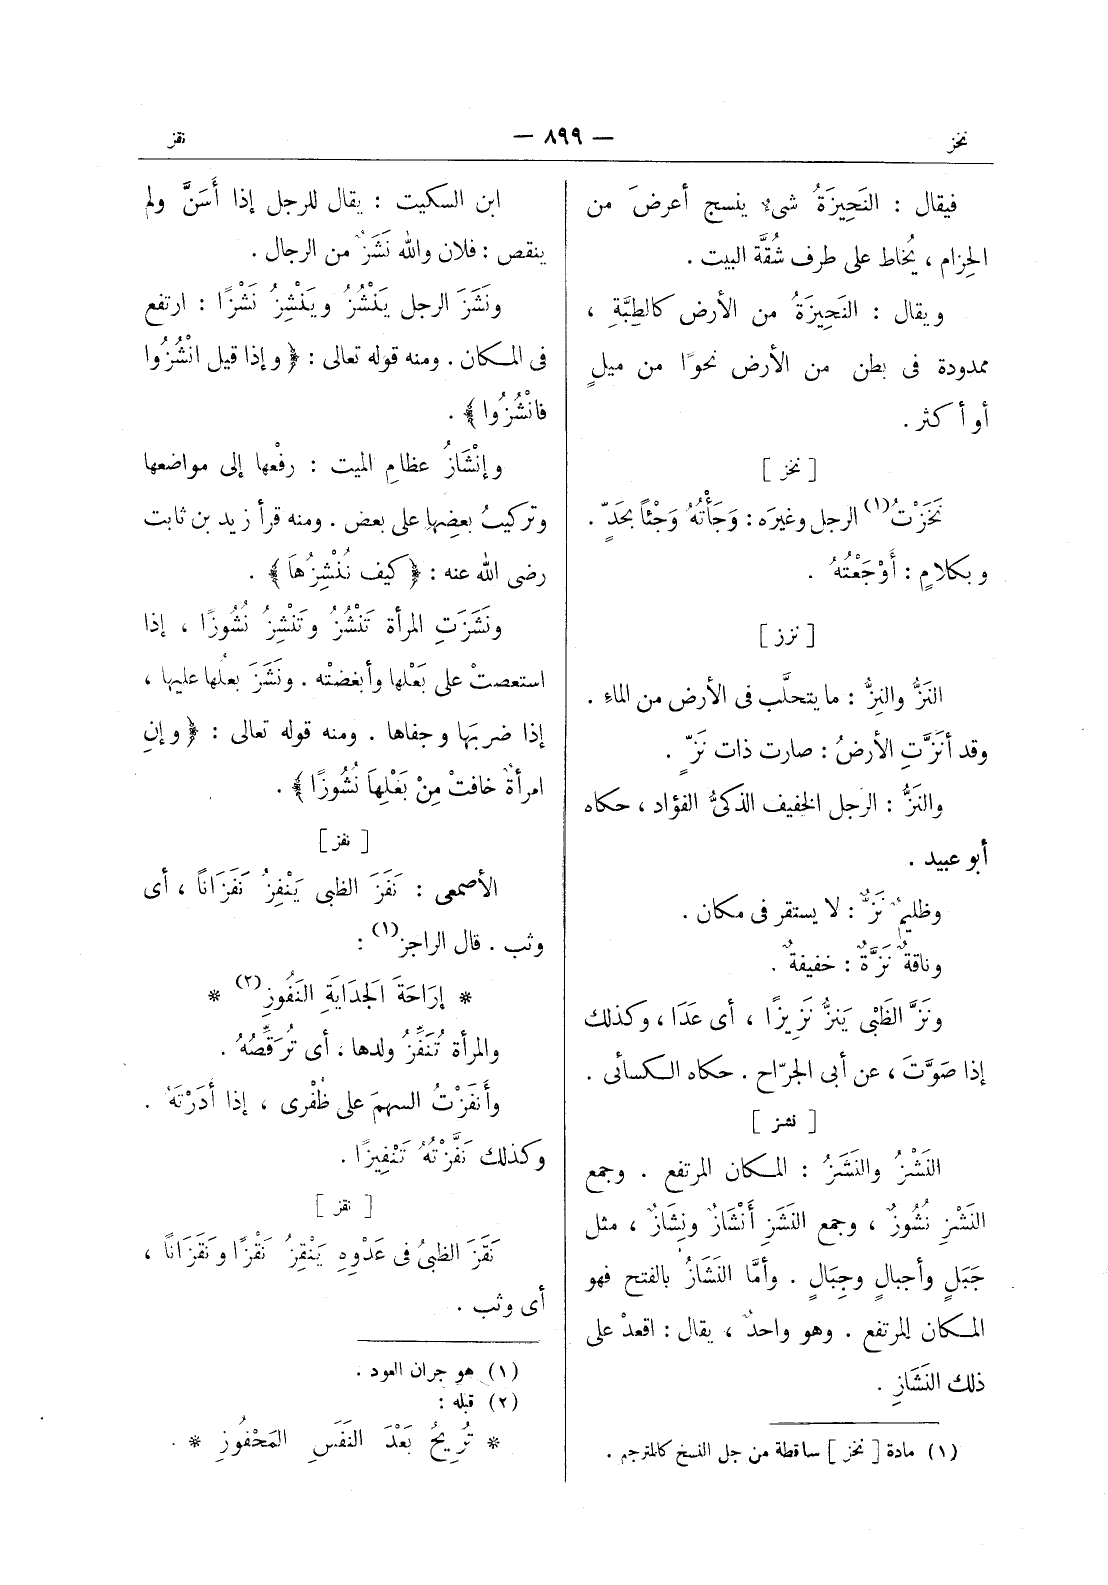 نخز — ٨٩٩ — نقز
فيقال : النَحِيزَةُ شىء ينسج أعرضَ من
الحِزام ، يُخاط على طرف شُقَّة البيت .
ويقال : النَحِيزَةُ من الأرض كالطِبَّةِ ،
ممدودة فى بطن من الأرض نحوًا من ميلٍ
أو أكثر .
[ نخز ]
نَخَزْتُ(١) الرجل وغيرَه : وَجَأْتُهُ وَجْئًا بحَدٍّ .
وبكلامٍ : أَوْجَعْتُهُ .
[ نزز ]
النَزُّ والنِزُّ : ما يتحلَّب فى الأرض من الماءِ .
وقد أنَزَّتِ الأرضُ : صارت ذات نَزٍّ .
والنَزُّ : الرجل الخفيف الذكىُّ الفؤاد ، حكاه
أبو عبيد .
وظليمٌ نَزٌّ : لا يستقر فى مكان .
وناقةٌ نَزَّةٌ : خفيفةٌ .
ونَزَّ الظَبْى يَنِزُّ نَزِيزًا ، أى عَدَا ، وكذلك
إذا صَوَّتَ ، عن أبى الجرّاح . حكاه الكسائى .
[ نشز ]
النَشْزُ والنَشَزُ : المكان المرتفع . وجمع
النَشْزِ نُشُوزٌ ، وجمع النَشَزِ أَنْشَازٌ ونِشَازٌ ، مثل
جَبَلٍ وأجبالٍ وجِبَالٍ . وأمَّا النَشَازُ بالفتح فهو
المكان المرتفع . وهو واحدٌ ، يقال : اقعدْ على
ذلك النَشَازِ .
(١) مادة [ نخز ] ساقطة من جل النسخ كالمترجم .
ابن السكيت : يقال للرجل إذا أَسَنَّ ولم
ينقص : فلان والله نَشَزٌ من الرجال .
ونَشَزَ الرجل يَنْشُزُ ويَنْشِزُ نَشْزًا : ارتفع
فى المكان . ومنه قوله تعالى : ﴿ وإذا قيل انْشُزُوا
فانْشُزُوا ﴾ .
وإنْشَازُ عظامِ الميت : رفْعها إلى مواضعها
وتركيبُ بعضِها على بعض . ومنه قرأ زيد بن ثابت
رضى الله عنه : ﴿ كيف نُنْشِزُهاَ ﴾ .
ونَشَزَتِ المرأة تَنْشُزُ وتَنْشِزُ نُشُوزًا ، إذا
استعصتْ على بَعْلها وأبغضتْه . ونَشَزَ بعلُها عليها ،
إذا ضربَها وجفاها . ومنه قوله تعالى : ﴿ وإنِ
امرأةٌ خافتْ مِنْ بَعْلِهاَ نُشُوزًا ﴾ .
[ نفز ]
الأصمعى : نَفَزَ الظبى يَنْفِزُ نَفَزَاناً ، أى
وثب . قال الراجز(١) :
* إرَاحَةَ الجَدَايَةِ النَفُوزِ(٢) *
والمرأة تُنَفِّزُ ولدها ، أى تُرَقِّصُهُ .
وأَنفَزْتُ السهمَ على ظُفْرى ، إذا أدَرْتَهُ .
وكذلك نَفَّزْتُهُ تَنْفِيزًا .
[ نقز ]
نَقَزَ الظبىُ فى عَدْوِهِ يَنْقِزُ نَقْزًا ونَقَزَاناً ،
أى وثب .
(١) هو جران العود .
(٢) قبله :
* تُرِيحُ بَعْدَ النَفَسِ المَحْفُوزِ * .